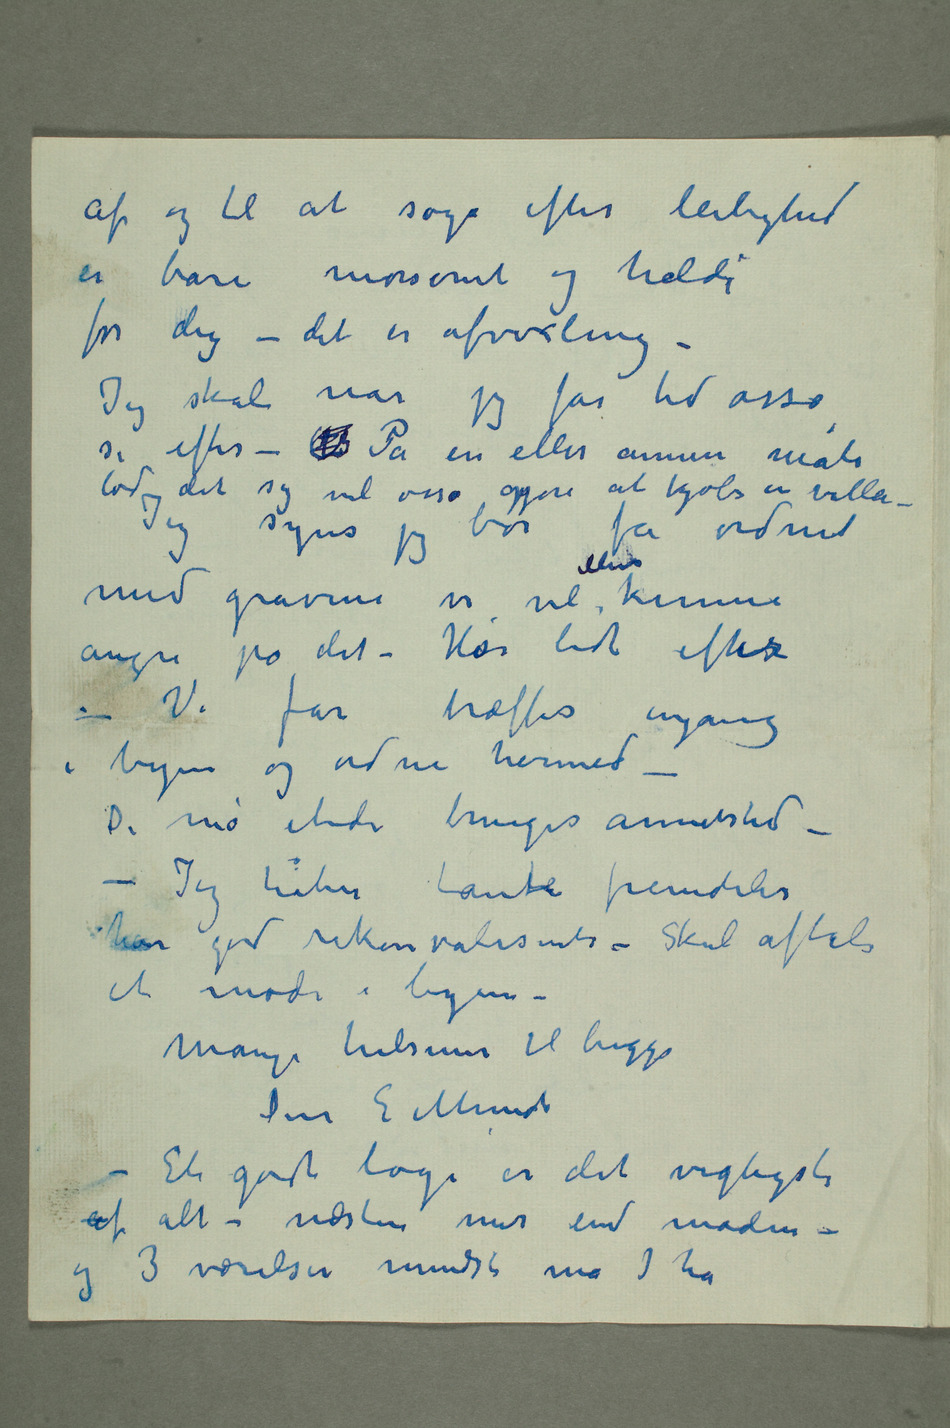 af og til at søge efter leilighed
er bare morsomt og heldi
for dig – det er afvexling –
Jeg skal når jeg får tid osså
se efter – På en eller annen måte
lod det sig vel osså gjøre at kjøbe en villa –
Jeg synes jeg bør få ordnet
med gravene vi vil ellers kunne
angre på det – Hør lidt efter
– Vi får træffes engang
i byen og ordne hermed –
De må etide bruges annetsted –
– Jeg håber tante fremdeles
har god rekonvalesents – Skal aftale
et møde i byen –
Mange hilsener til begge
Din E Munch
– Et godt logi er det vigtigste
af alt – næsten mer end maden –
og 3 værelser mindst må I ha